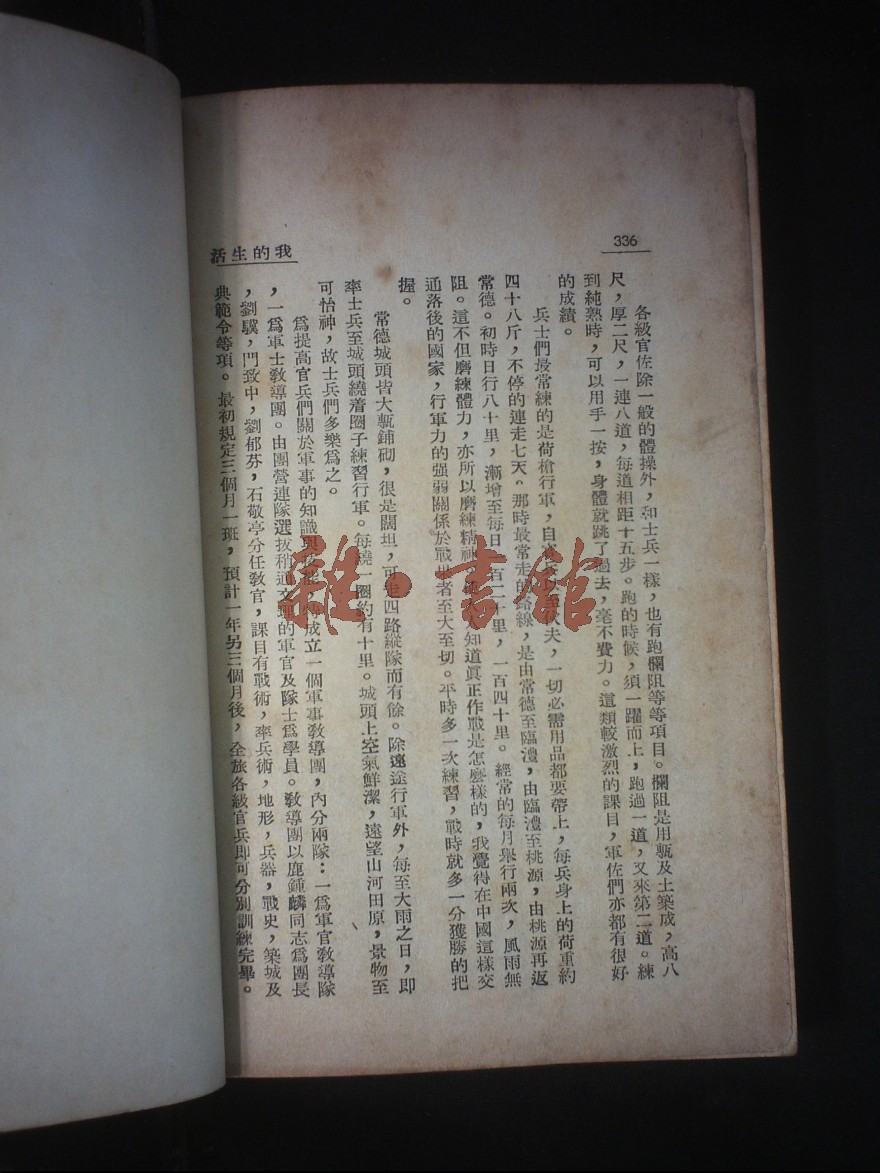 336
我的生活
各級官佐除一般的體操外，和士兵一樣，也有跑欄阻等等項目。欄阻是用甎及土築成，高八
尺，厚二尺，一連八道，每道相距十五步。跑的時候，須一躍而上，跑過一道，又來第二道。練
到純熟時，可以用手一按，身體就跳了過去，毫不費力。這類較激烈的課目，軍佐們亦都有很好
的成績。
兵士們最常練的是荷槍行軍，自 伕夫，一切必需用品都要帶上，每兵身上的荷重約
四十八斤，不停的連走七天。那時最常走的路線，是由常德至臨澧，由臨澧至桃源，由桃源再返
常德。初時日行八十里，漸增至每日一百二十里，一百四十里。經常的每月舉行兩次，風雨無
阻。這不但磨練體力，亦所以磨練精神， 知道眞正作戰是怎麽樣的，我覺得在中國這樣交
通落後的國家，行軍力的强弱關係於戰 者至大至切。平時多一次練習，戰時就多一分獲勝的把
握。
常德城頭皆大甎鋪砌，很是闊坦，可走四路縱隊而有餘。除遠途行軍外，每至大雨之日，即
率士兵至城頭繞着圈子練習行軍。每繞一圈約有十里。城頭上空氣鮮潔，遠望山河田原，景物至
可怡神，故士兵們多樂爲之。
爲提高官兵們關於軍事的知識與 成立一個軍事敎導團，內分兩隊：一爲軍官敎導隊
，一爲軍士敎導團。由團營連隊選拔稍通文理的軍官及隊士爲學員。敎導團以鹿鍾麟同志爲團長
，劉驥，門致中，劉郁芬，石敬亭分任敎官，課目有戰術，率兵術，地形，兵器，戰史，築城及
典範令等項。最初規定三個月一班，預計一年另三個月後，全旅各級官兵即可分別訓練完畢。
雜·書館